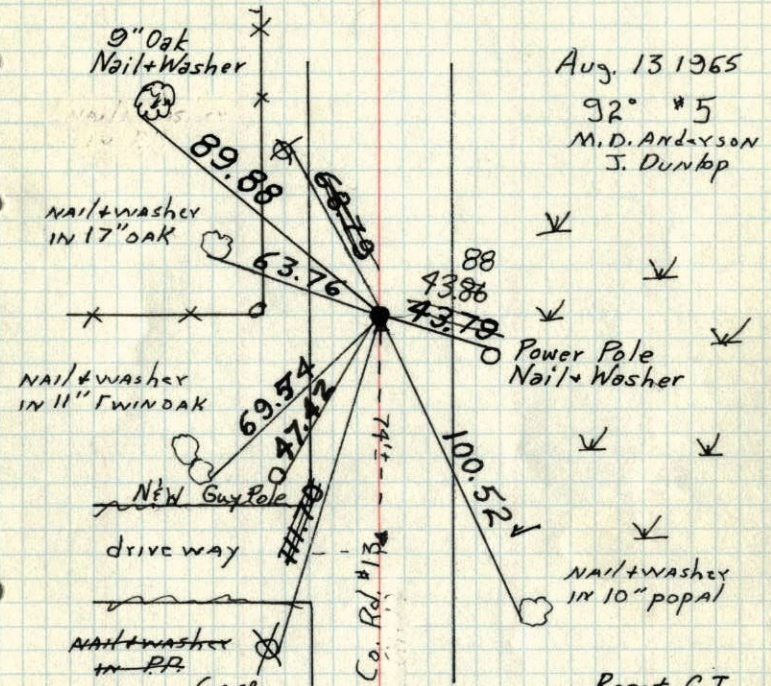 9" Oak
Nail + Washer
Aug. 13 1965
92° #5
M.D. Anderson
J. Dunlop
89.88
68.79
NAil + WAsher
IN 17" OAK
63.76
88
43.86
43.79
Power Pole
Nail + Washer
NAil + WAsher
IN 11" TWIN OAK
69.54
47.42
74'±
100.52 ✓
N&W Guy Pole
111.70
driveway
Co. Rd. #13
NAil + WAsher
IN 10" popal
NAil + WAsher
IN P.P.